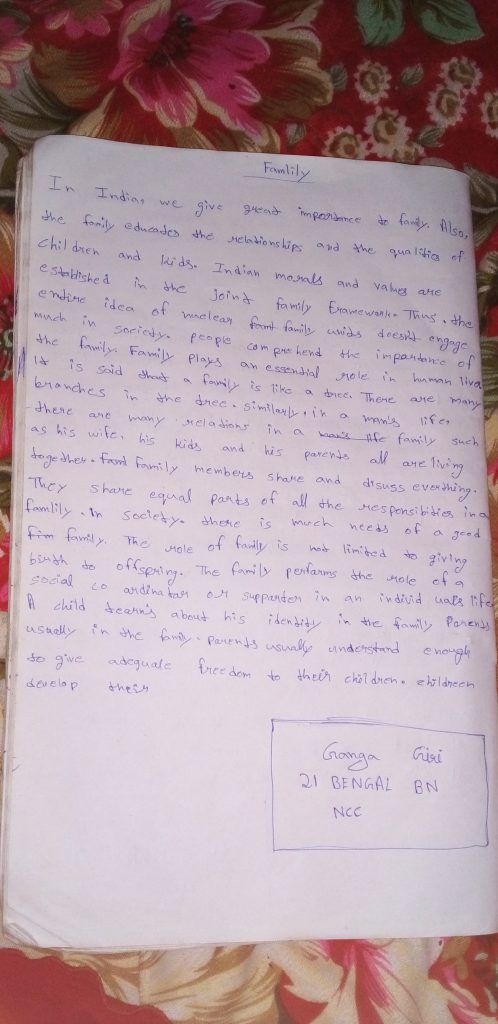 Famlily
In Indian we give great importance to family. Also,
the family educates the relationships and the qualities of
children and kids. Indian morals and values are
established in the joint family framework. Thus, the
entire idea of nuclear family units doesn't engage
much in society. people comprehend the importance of
the family. Family plays an essential role in human liva
It is said that a family is like a tree. There are many
branches in the tree. similarly, in a man's life,
there are many relations in a life family such
as his wife, his kids and his parents all are living
together. family members share and disuss everthing.
They share equal parts of all the responsibities in a
famlily. In society. there is much needs of a good
family. The role of family is not limited to giving
birth to offspring. The family performs the role of a
social co ordinator or supparter in an individuals life
A child learn's about his identity in the family Parents
usually in the family. parents usually understand enough
to give adequale freedom to their children. childreen
develop their
Ganga Giri
21 BENGAL BN
NCC